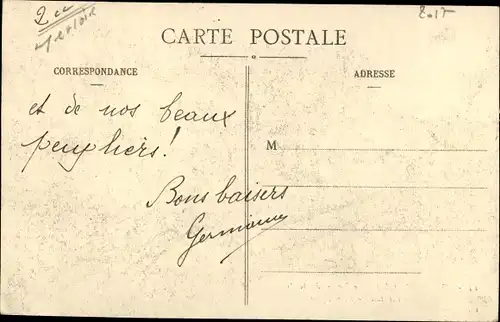 CARTE POSTALE
CORRESPONDANCE
ADRESSE
et de nos beaux
peupliers!
M
Bons baisers
Germaine